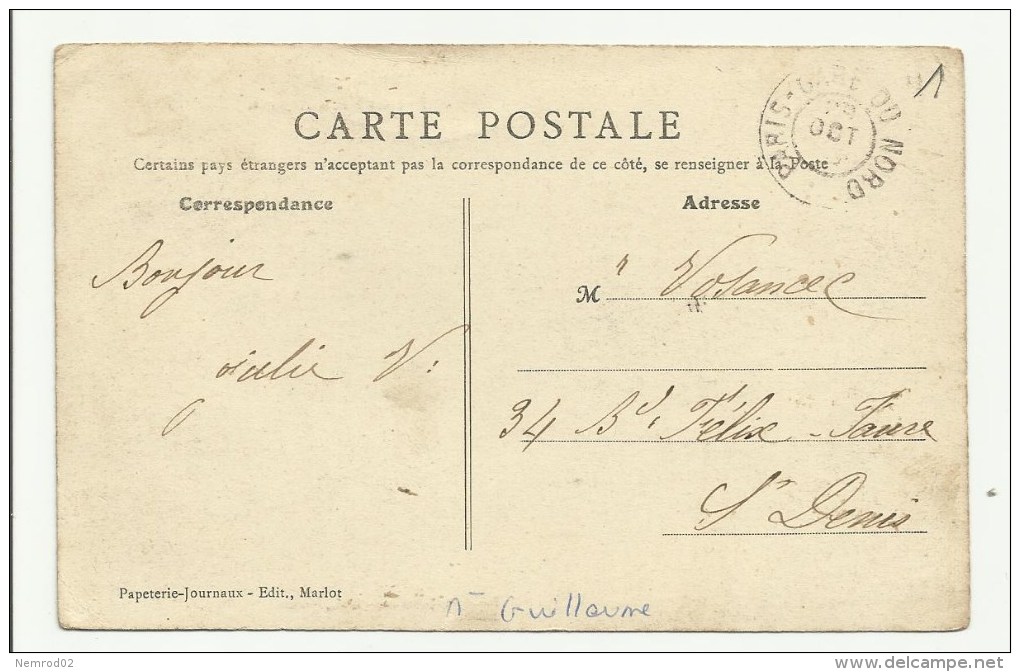 CARTE POSTALE
Certains pays étrangers n'acceptant pas la correspondance de ce côté, se renseigner à la Poste
PARIS-GARE DU NORD
OCT
1
Correspondance
Adresse
Bonjour
Julie V.
M r Vosancec
34 Bd. Félix-Faure
St Denis
Papeterie-Journaux - Edit., Marlot
Guillaume
Nemrod02
www.delcampe.net